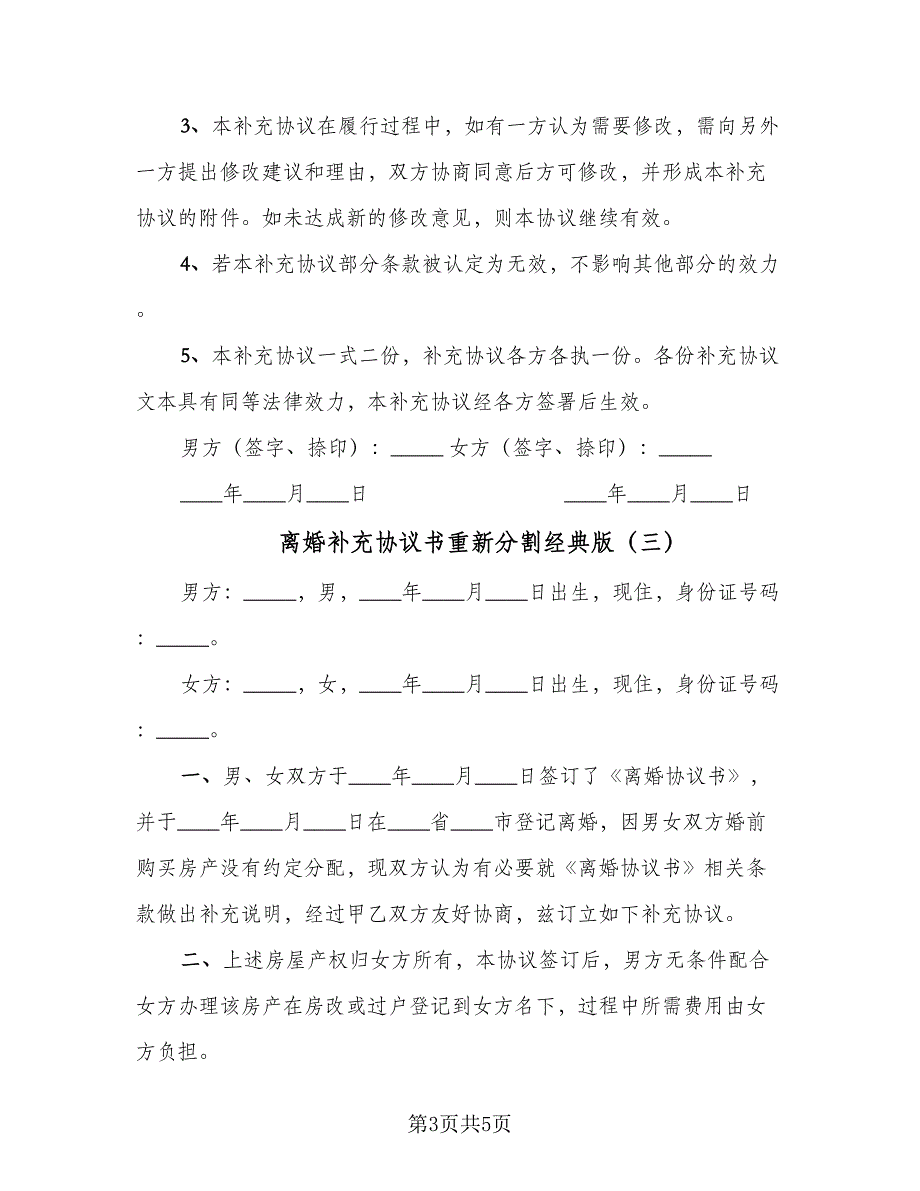 3、本补充协议在履行过程中，如有一方认为需要修改，需向另外
一方提出修改建议和理由，双方协商同意后方可修改，并形成本补充
协议的附件。如未达成新的修改意见，则本协议继续有效。
4、若本补充协议部分条款被认定为无效，不影响其他部分的效力
。
5、本补充协议一式二份，补充协议各方各执一份。各份补充协议
文本具有同等法律效力，本补充协议经各方签署后生效。
男方（签字、捺印）：_____ 女方（签字、捺印）：_____
____年____月____日 ____年____月____日
离婚补充协议书重新分割经典版（三）
男方：_____，男，____年____月____日出生，现住，身份证号码
：_____。
女方：_____，女，____年____月____日出生，现住，身份证号码
：_____。
一、男、女双方于____年____月____日签订了《离婚协议书》，
并于____年____月____日在____省____市登记离婚，因男女双方婚前
购买房产没有约定分配，现双方认为有必要就《离婚协议书》相关条
款做出补充说明，经过甲乙双方友好协商，兹订立如下补充协议。
二、上述房屋产权归女方所有，本协议签订后，男方无条件配合
女方办理该房产在房改或过户登记到女方名下，过程中所需费用由女
方负担。
第3页共5页